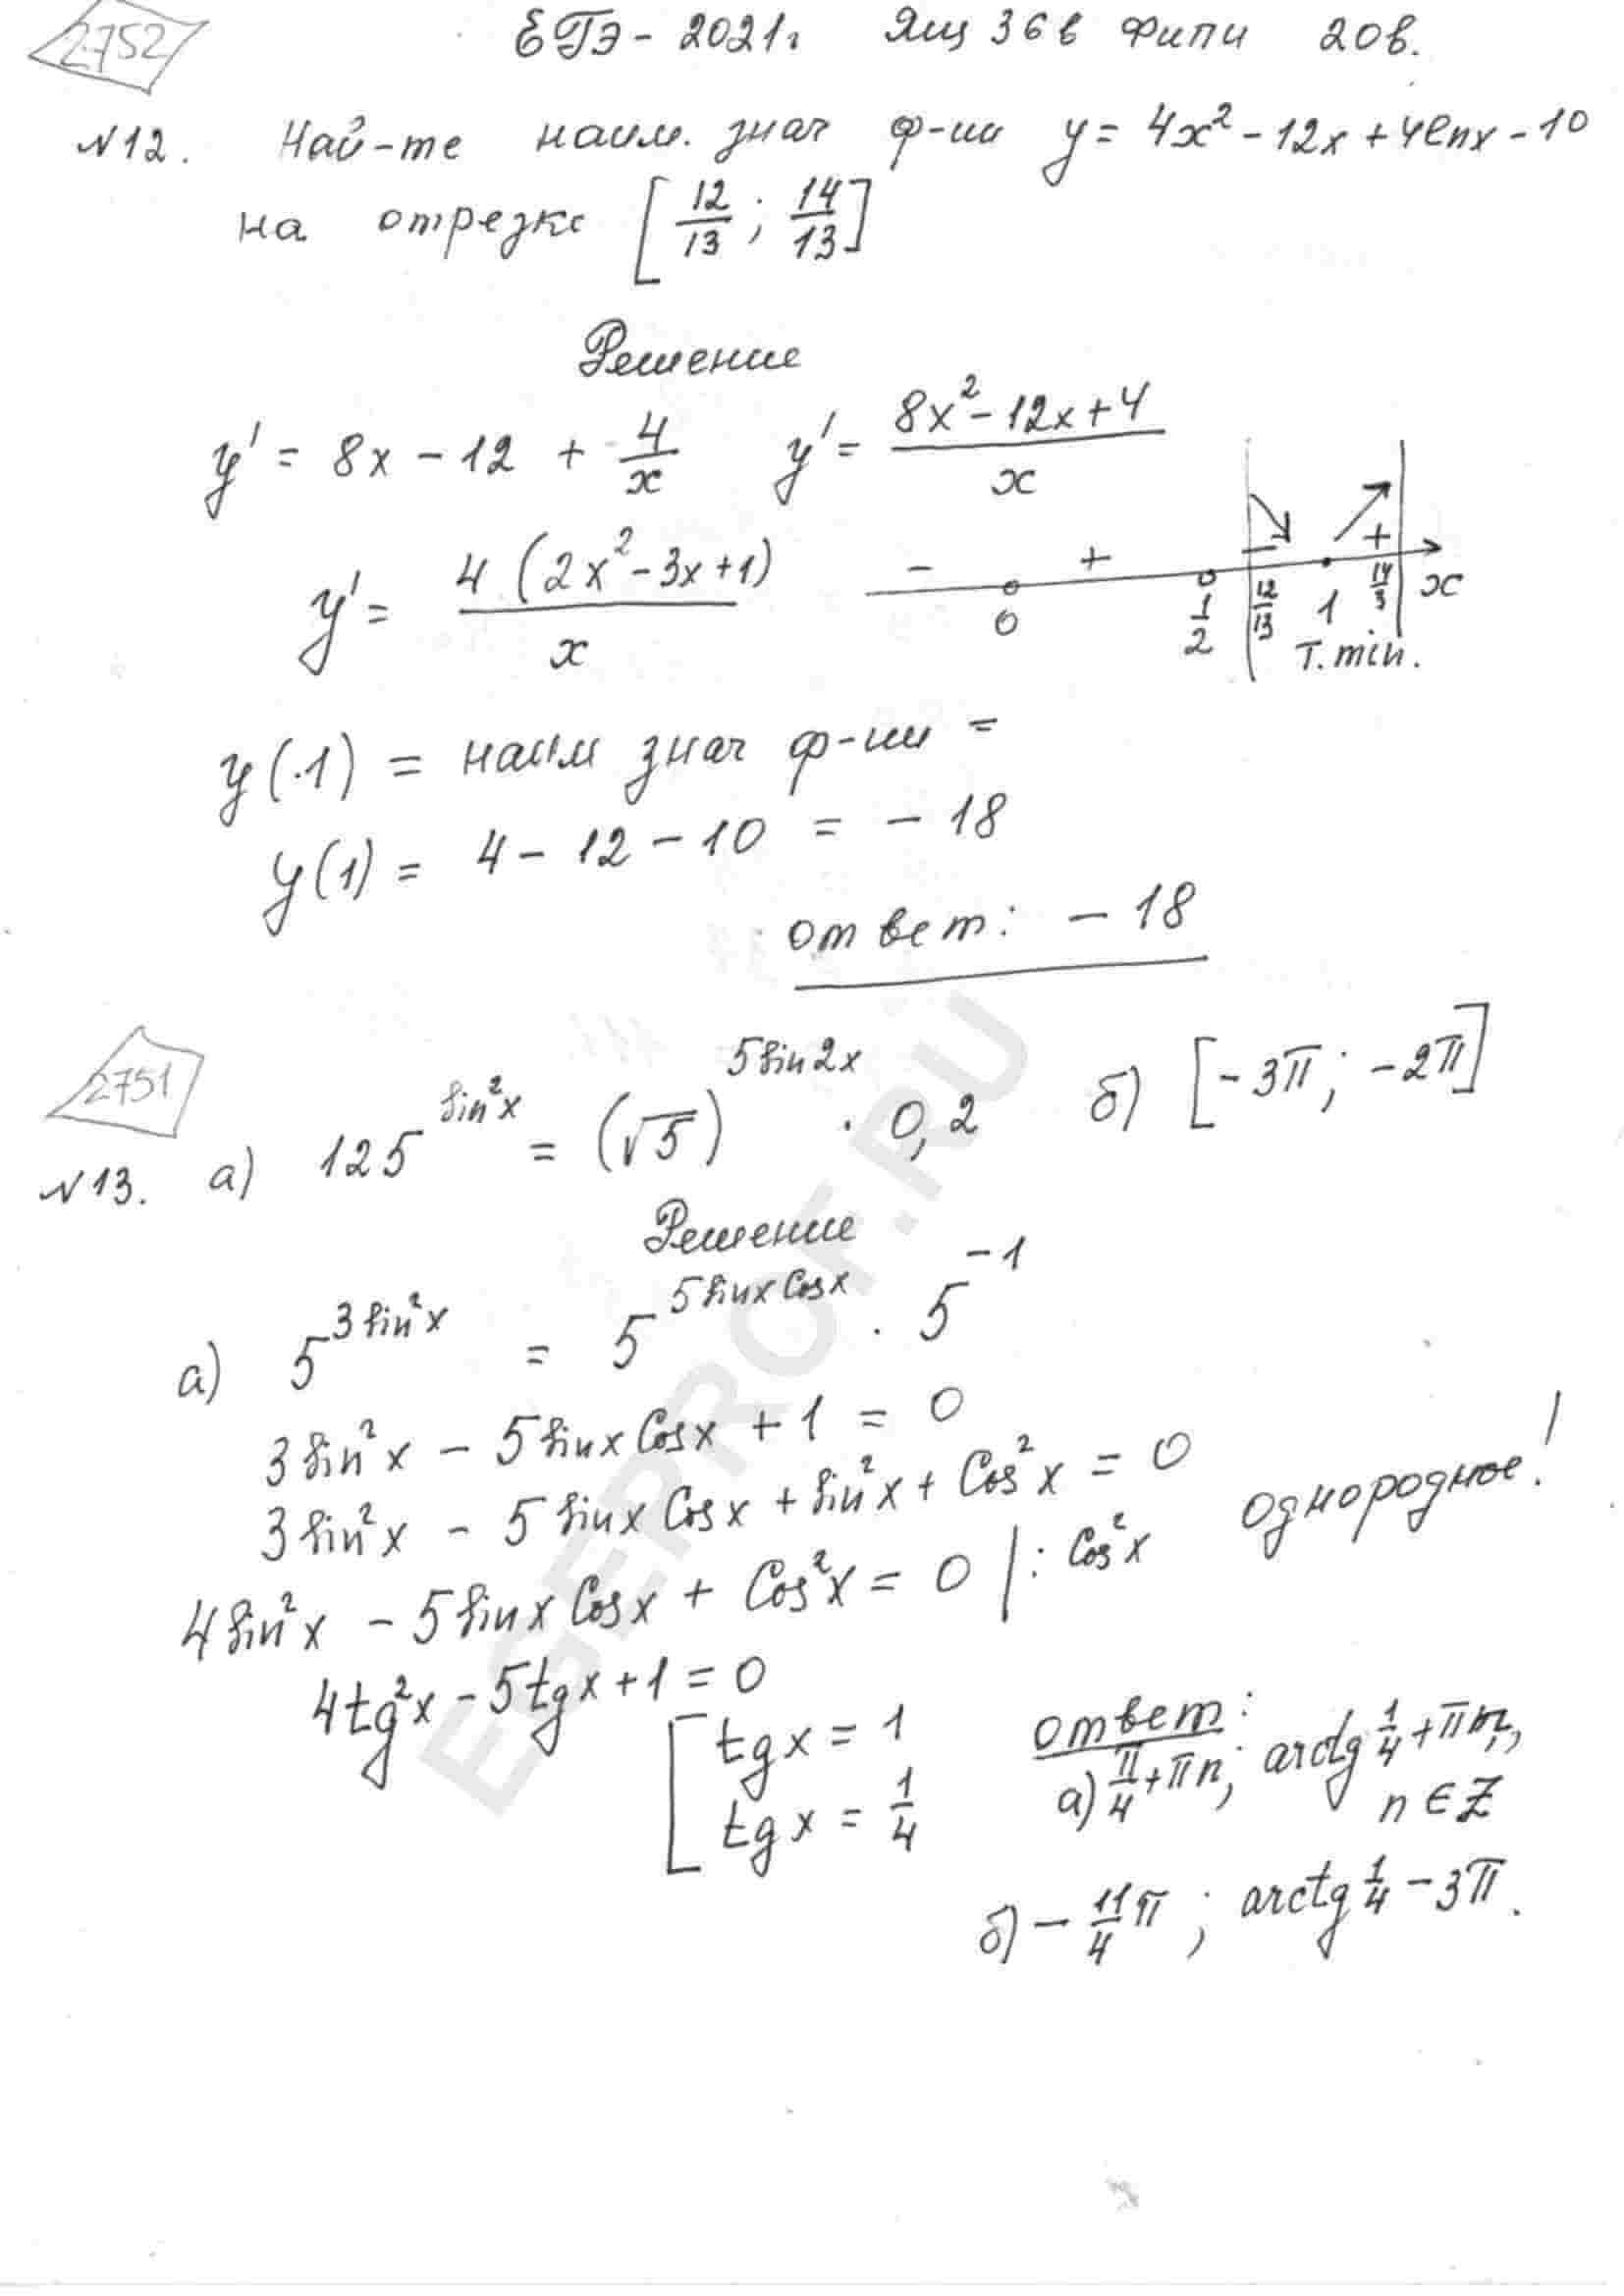 2752
ЕГЭ - 2021г Ящ 36в Фипи 20в.
№12. Най-те наим. знач ф-ии y = 4x² - 12x + 4lnx - 10
на отрезке [12/13; 14/13]
Решение
y' = 8x - 12 + 4/x y' = (8x² - 12x + 4)/x
y' = 4(2x² - 3x + 1)/x
- + - +
0 1/2 12/13 1 14/3 x
т. min.
y(·1) = наим знач ф-ии =
y(1) = 4 - 12 - 10 = - 18
ответ: - 18
2751
№13. а) 125^(sin²x) = (√5)^(5sin2x) · 0,2 б) [-3π; -2π]
Решение
а) 5^(3sin²x) = 5^(5sinxcosx) · 5^(-1)
3sin²x - 5sinxCosx + 1 = 0
3sin²x - 5sinxCosx + sin²x + Cos²x = 0
4sin²x - 5sinxCosx + Cos²x = 0 |: Cos²x однородное!
4tg²x - 5tgx + 1 = 0
[ tgx = 1
tgx = 1/4
ответ:
а) π/4 + πn; arctg 1/4 + πn,
n ∈ Z
б) - 11/4 π; arctg 1/4 - 3π.
EGEPROF.RU